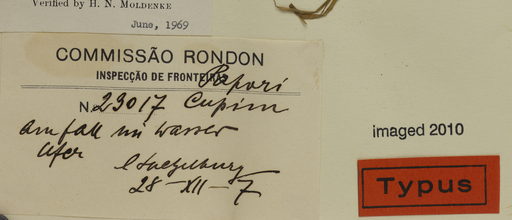 Verified by H. N. MOLDENKE
June, 1969
COMMISSÃO RONDON
INSPECÇÃO DE FRONTEIRAS
Papori
N. 23017 Cupim
am fall im Wasser
Ufer
28-XII-7
imaged 2010
Typus